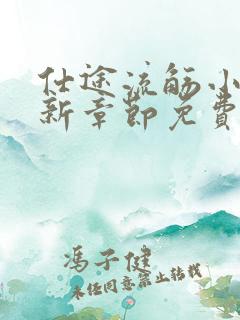 仕途流觞小
新章节免费
冯子健
未经同意禁止转载